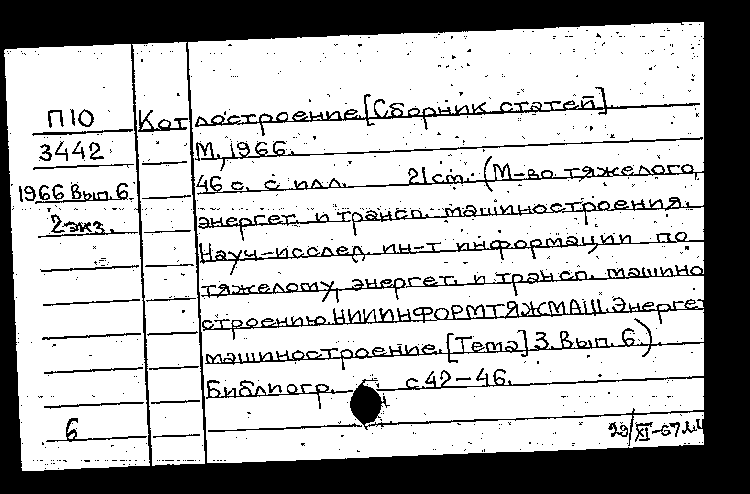 П10 Котлостроение. [Сборник статей]
3442 М., 1966.
1966 Вып. 6. 46 с. с илл. 21 cm. (М-во тяжелого,
2 экз. энергет. и трансп. машиностроения.
Науч.-исслед. ин-т информации по
тяжелому, энергет. и трансп. машино
строению. НИИИНФОРМТЯЖМАШ. Энергет
машиностроение. [Тема] 3. Вып. 6.).
Библиогр. с. 42-46.
6
29/XI-67